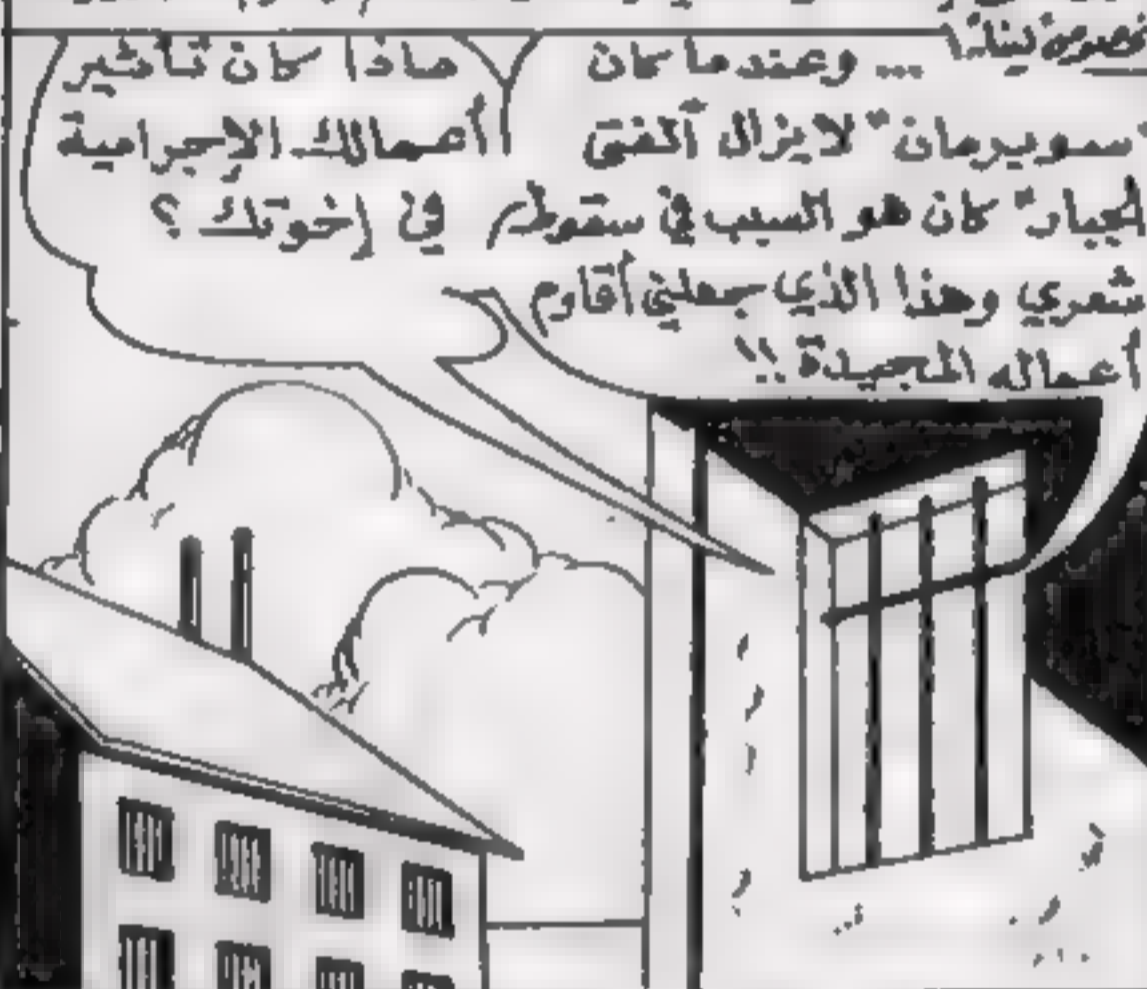 ... وعندما كان
سوبرمان" لا يزال "الفتى
الجبار" كان هو السبب في سقوط
شعري وهذا الذي جعلني أقاوم
أعماله المجيدة !!
ماذا كان تأثير
أعمالك الإجرامية
في إخوتك ؟